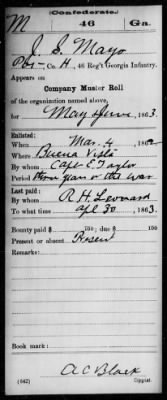 Confederate.
M 46 Ga.
J. S. Mayo
Pvt., Co. H, 46 Reg't Georgia Infantry.
Appears on
Company Muster Roll
of the organization named above,
for May & June, 1863.
Enlisted:
When Mar. 4, 1862
Where Buena Vista
By whom Capt E Taylor
Period three years or the war
Last paid:
By whom R H Leonard
To what time Apl 30, 1863.
Bounty paid $ 100; due $ 100
Present or absent Present
Remarks:
Book mark:
A C Black
(642) Copyist.